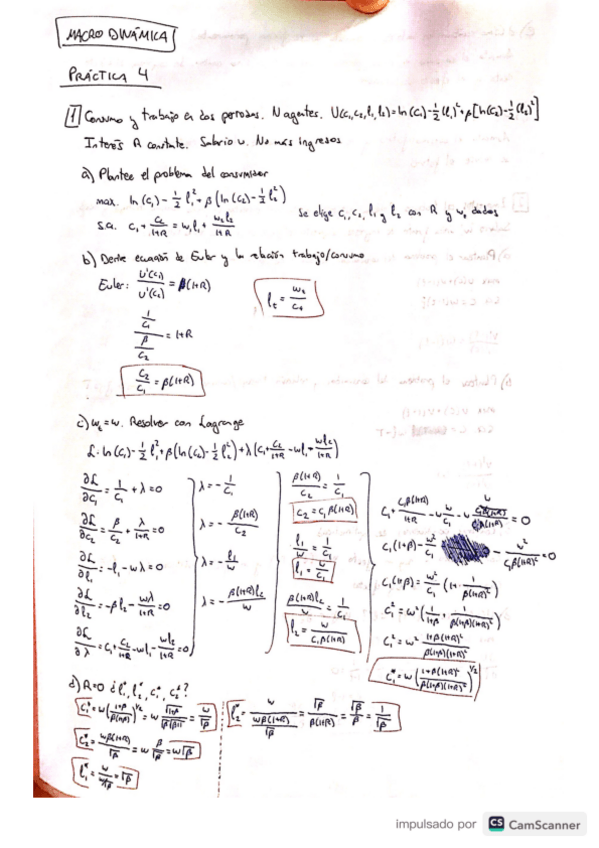 MACRO DINÁMICA
PRÁCTICA 4
1 Consumo y trabajo en dos periodos. N agentes. U(c₁,c₂,l₁,l₂)=ln(c₁)-½(l₁)²+β[ln(c₂)-½(l₂)²]
Interés R constante. Salario w. No más ingresos
a) Plantee el problema del consumidor
max. ln(c₁)-½l₁²+β(ln(c₂)-½l₂²)
s.a. c₁+c₂/(1+R)=w₁l₁+w₂l₂/(1+R)
Se elige c₁,c₂,l₁ y l₂ con R y wₜ dados
b) Derive ecuación de Euler y la relación trabajo/consumo
Euler: U'(c₁)/U'(c₂)=β(1+R)
lₜ=wₜ/cₜ
(1/c₁)/(β/c₂)=1+R
c₂/c₁=β(1+R)
c) wₜ=w. Resolver con Lagrange
L=ln(c₁)-½l₁²+β(ln(c₂)-½l₂²)+λ(c₁+c₂/(1+R)-wl₁-wl₂/(1+R))
∂L/∂c₁=1/c₁+λ=0
∂L/∂c₂=β/c₂+λ/(1+R)=0
∂L/∂l₁=-l₁-wλ=0
∂L/∂l₂=-βl₂-wλ/(1+R)=0
∂L/∂λ=c₁+c₂/(1+R)-wl₁-wl₂/(1+R)=0
λ=-1/c₁
λ=-β(1+R)/c₂
λ=-l₁/w
λ=-β(1+R)l₂/w
β(1+R)/c₂=1/c₁
c₂=c₁β(1+R)
l₁/w=1/c₁
l₁=w/c₁
β(1+R)l₂/w=1/c₁
l₂=w/(c₁β(1+R))
c₁+c₁β(1+R)/(1+R)-w w/c₁-w
=0
c₁(1+β)-w²/c₁-w²/(c₁β(1+R)²)=0
c₁(1+β)=w²/c₁(1+1/(β(1+R)²)
c₁²=w²(1/(1+β)+1/(β(1+β)(1+R)²)
c₁²=w²(1+β(1+R)²)/(β(1+β)(1+R)²)
c₁*=w((1+β(1+R)²)/(β(1+β)(1+R)²))^1/2
d) R=0 ¿l₁*,l₂*,c₁*,c₂*?
c₁*=w((1+β)/(β(1+β)))^1/2=w√(1+β)/√(β(1+β))=w/√β
c₂*=wβ(1+R)/√β=wβ/√β=w√β
l₁*=w/(w/√β)=√β
l₂*=w/(wβ(1+R)/√β)=√β/(β(1+R))=√β/β=1/√β
impulsado por CS CamScanner